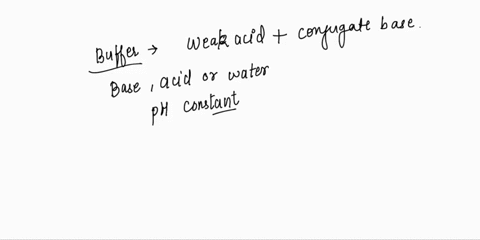 Buffer → weak acid + conjugate base.
Base, acid or water
pH constant